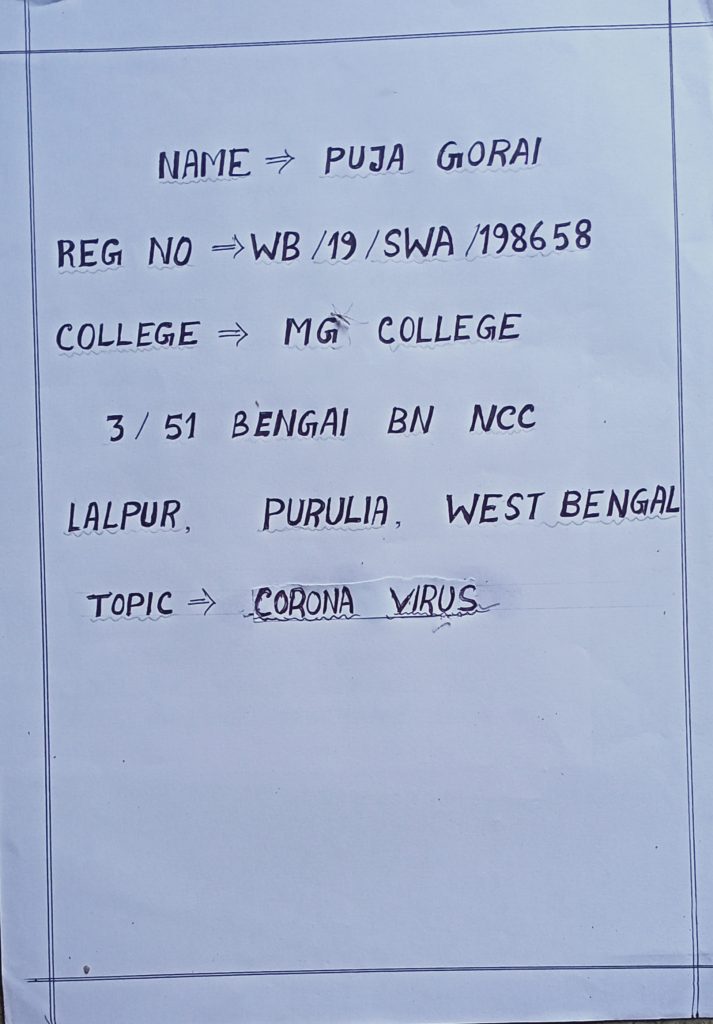 NAME ⇒ PUJA GORAI
REG NO ⇒ WB/19/SWA/198658
COLLEGE ⇒ MG COLLEGE
3/51 BENGAI BN NCC
LALPUR, PURULIA, WEST BENGAL
TOPIC ⇒ CORONA VIRUS